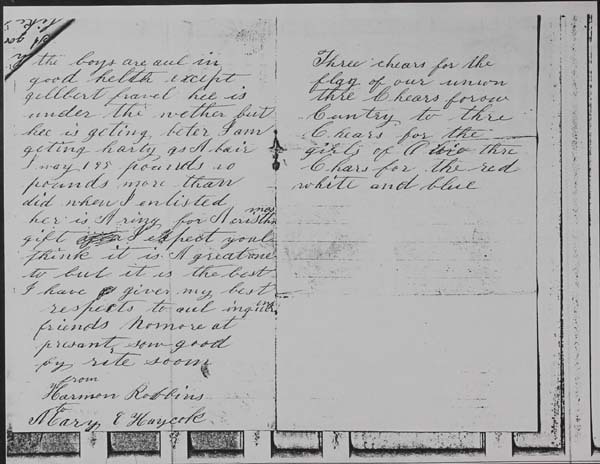 the boys are aul in
good helth except
gillbert fravel hee is
under the wether but
hee is geting beter I am
geting harty as A bair
I way 188 pounds 10
pounds more than
did when I enlisted
her is A ring for A cristmas
gift I expect youl
think it is A great one
to but it is the best
I have give my best
respects to aul inquiring
friends nomore at
presant sow good
by rite soon
from
Harmon Robbins
Mary E Haycok
Three chears for the
flag of our union
thre Chears for ow
Cuntry to thre
Chears for the
girls of Ohio thre
Chars for the red
white and blue